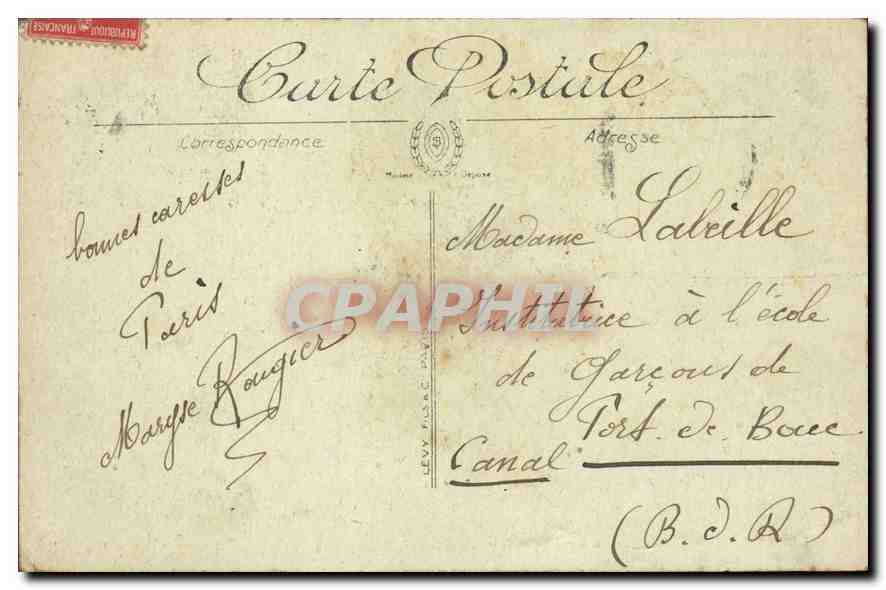 REPUBLIQUE FRANCAISE
Carte Postale
Correspondance
Adresse
LS
Marque Déposé
bonnes caresses
de
Paris
Maryse Rougier
LEVY FILS & C PARIS
Madame Labeille
Institutrice à l'école
de garçons de
Port. de. Bouc
Canal
(B. d. R)
CPAPHIL